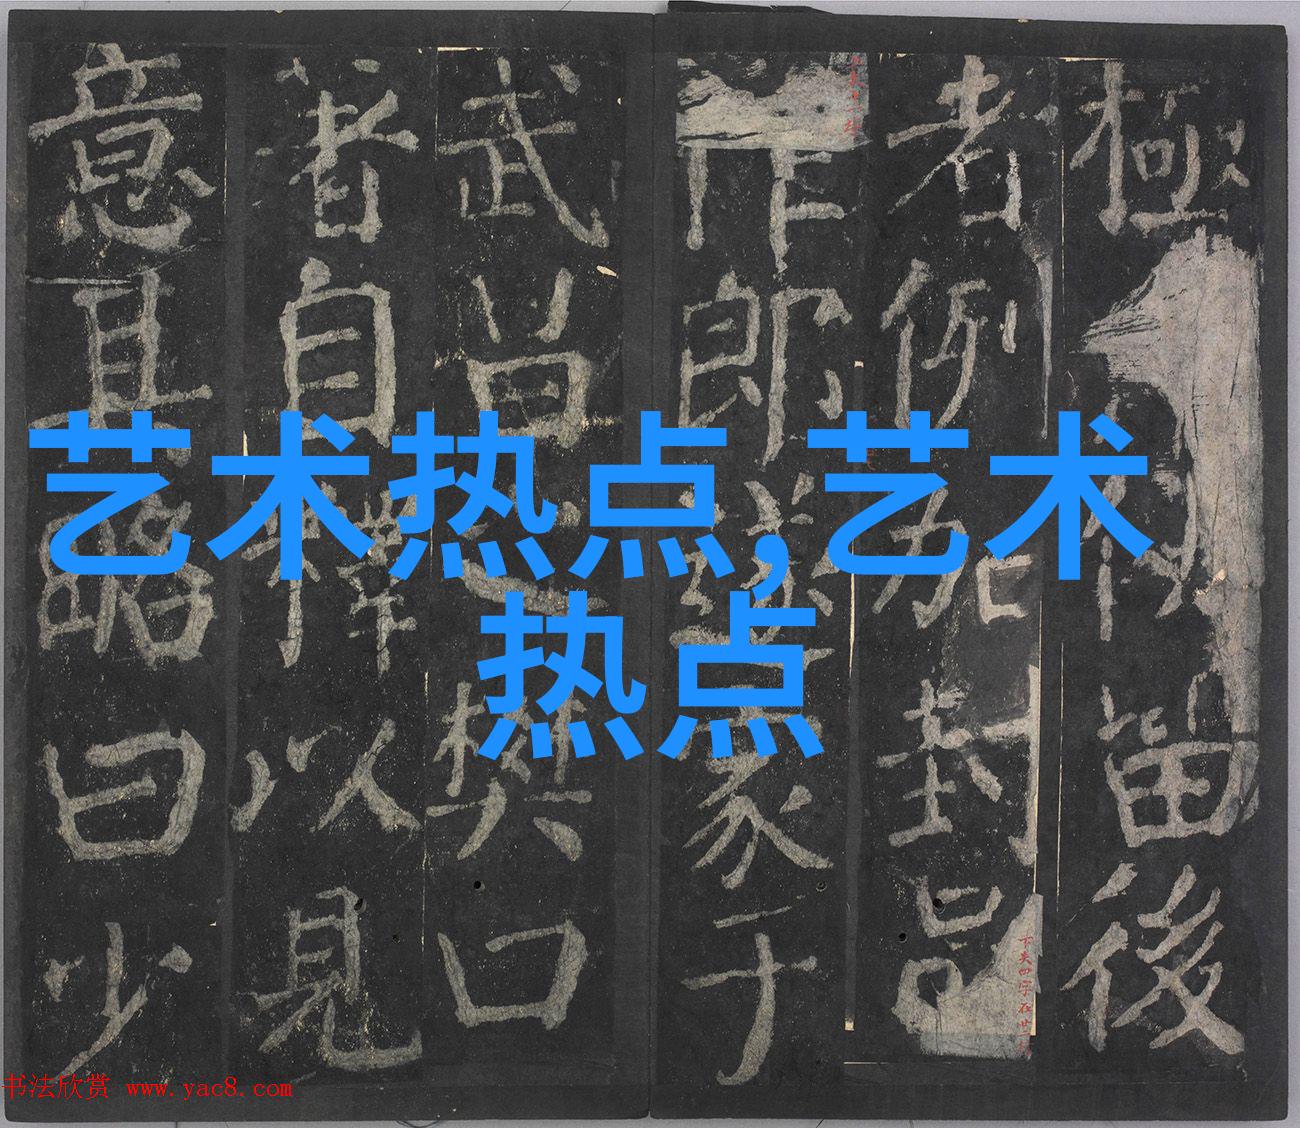 艺术热点,艺术
热点
極留後
者例加封邑
作郎遂家于
武昌之樊口
著自釋以見
意其略曰少
书法欣赏 www.yac8.com